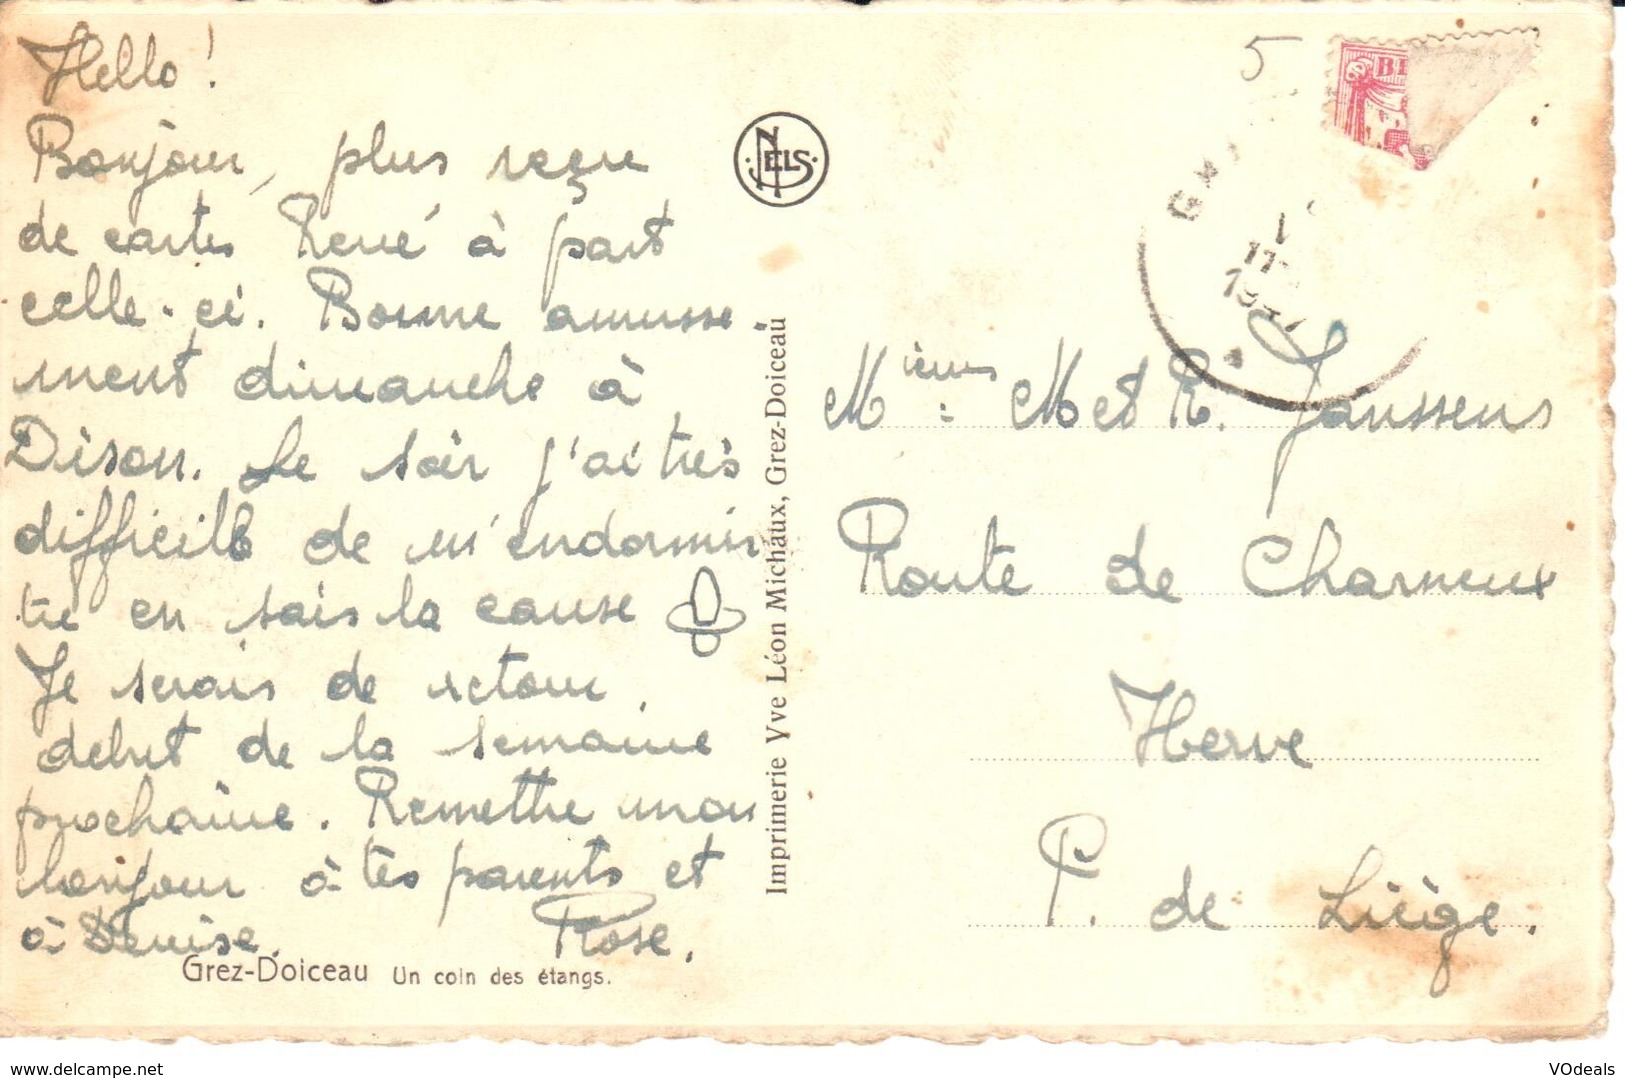 Hello!
Bonjour, plus reçu
de cartes René à part
celle-ci. Bonne amusse-
ment dimanche à
Dison. Le soir j'ai très
difficile de m'endormir
tu en sais la cause
Je serais de retour
debut de la semaine
prochaine. Remettre mon
bonjour à tes parents et
à Denise. Rose.
Grez-Doiceau Un coin des étangs.
NELS
Imprimerie Vve Léon Michaux, Grez-Doiceau
5
BE
M M et R. Janssens
Route de Charneux
Herve
P. de Liège.
VOdeals